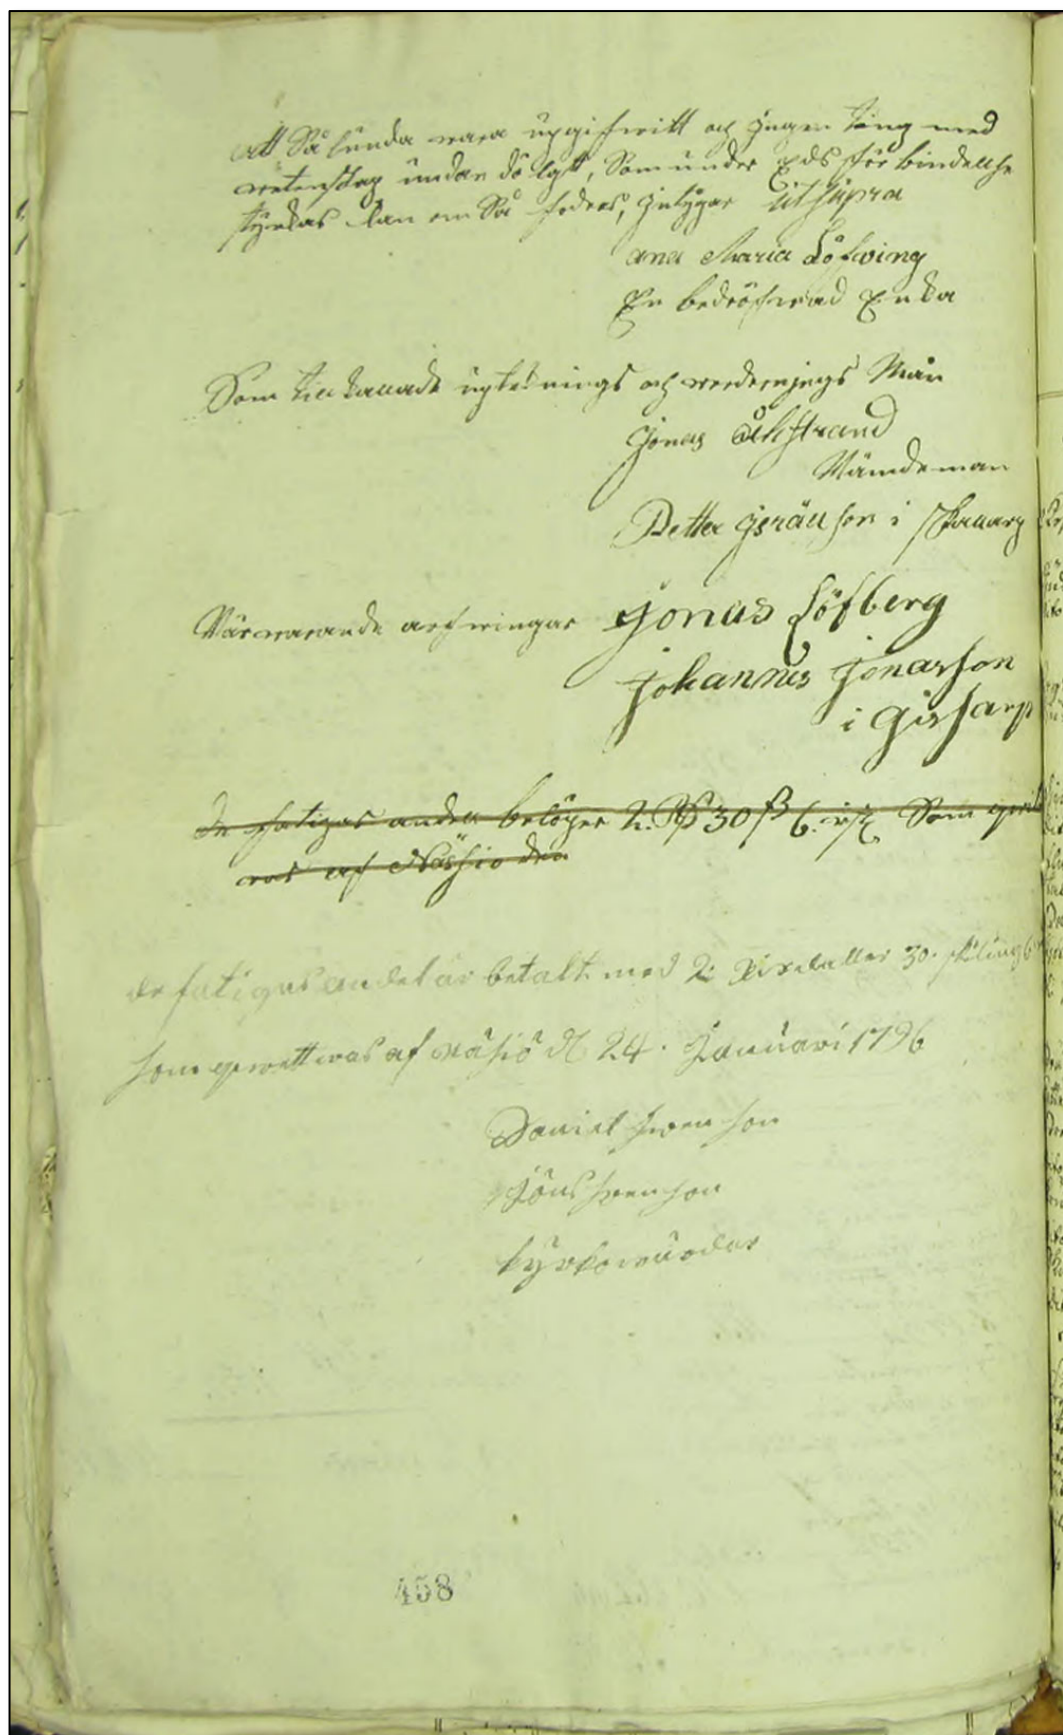 att Så lunda vara upgifwitt och ingen ting med
wetenskap undan dölgt, Som under Eds förbindellse
styrckas kan om Så fodras, intÿgar ut supra
ana Maria Löfwing
En bedröfwad Enka
Som till kallade upteknings och werderings Män
Jonas Ækstrand
Nämdeman
Petter Israelson i Skallarp
Närwarande arfwingar Jonas Löfberg
Johannes Jonasson
i Gissarp
De fatigas andel belöper 2. Rd 30 ß 6. rst. Som
ras af Nässio den
de fatigas andel är betalt med 2: Rixdaller 30. skilling 6
som qwitteras af Näsiö d 24. Januari 1796
Daniel Swenson
Jöns Swenson
kyrkowärdar
458